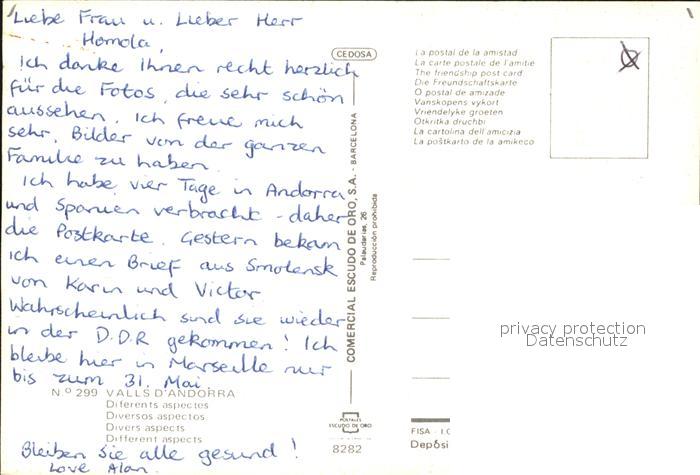 Liebe Frau u. Lieber Herr
Homola,
Ich danke Ihnen recht herzlich
für die Fotos, die sehr schön
aussehen. Ich freue mich
sehr, Bilder von der ganzen
Familie zu haben.
Ich habe vier Tage in Andorra
und Spanien verbracht - daher
die Postkarte. Gestern bekam
ich einen Brief aus Smolensk
von Karin und Victor
Wahrscheinlich sind sie wieder
in der D.D.R gekommen! Ich
bleibe hier in Marseille nur
bis zum 31. Mai.
Nº 299 VALLS D'ANDORRA
Diferents aspectes
Diversos aspectos
Divers aspects
Different aspects
Bleiben Sie alle gesund!
Love Alan.
CEDOSA
COMERCIAL ESCUDO DE ORO, S.A. - BARCELONA
Palaudarias, 26
Reproducción prohibida
POSTALES
ESCUDO DE ORO
8282
La postal de la amistad
La carte postale de l'amitie
The friendship post card
Die Freundschaftskarte
O postal de amizade
Vanskopens vykort
Vriendelyke groeten
Otkritka druchbi
La cartolina dell'amicizia
La poŝtkarto de la amikeco
privacy protection
Datenschutz
FISA - I.G
Depósi